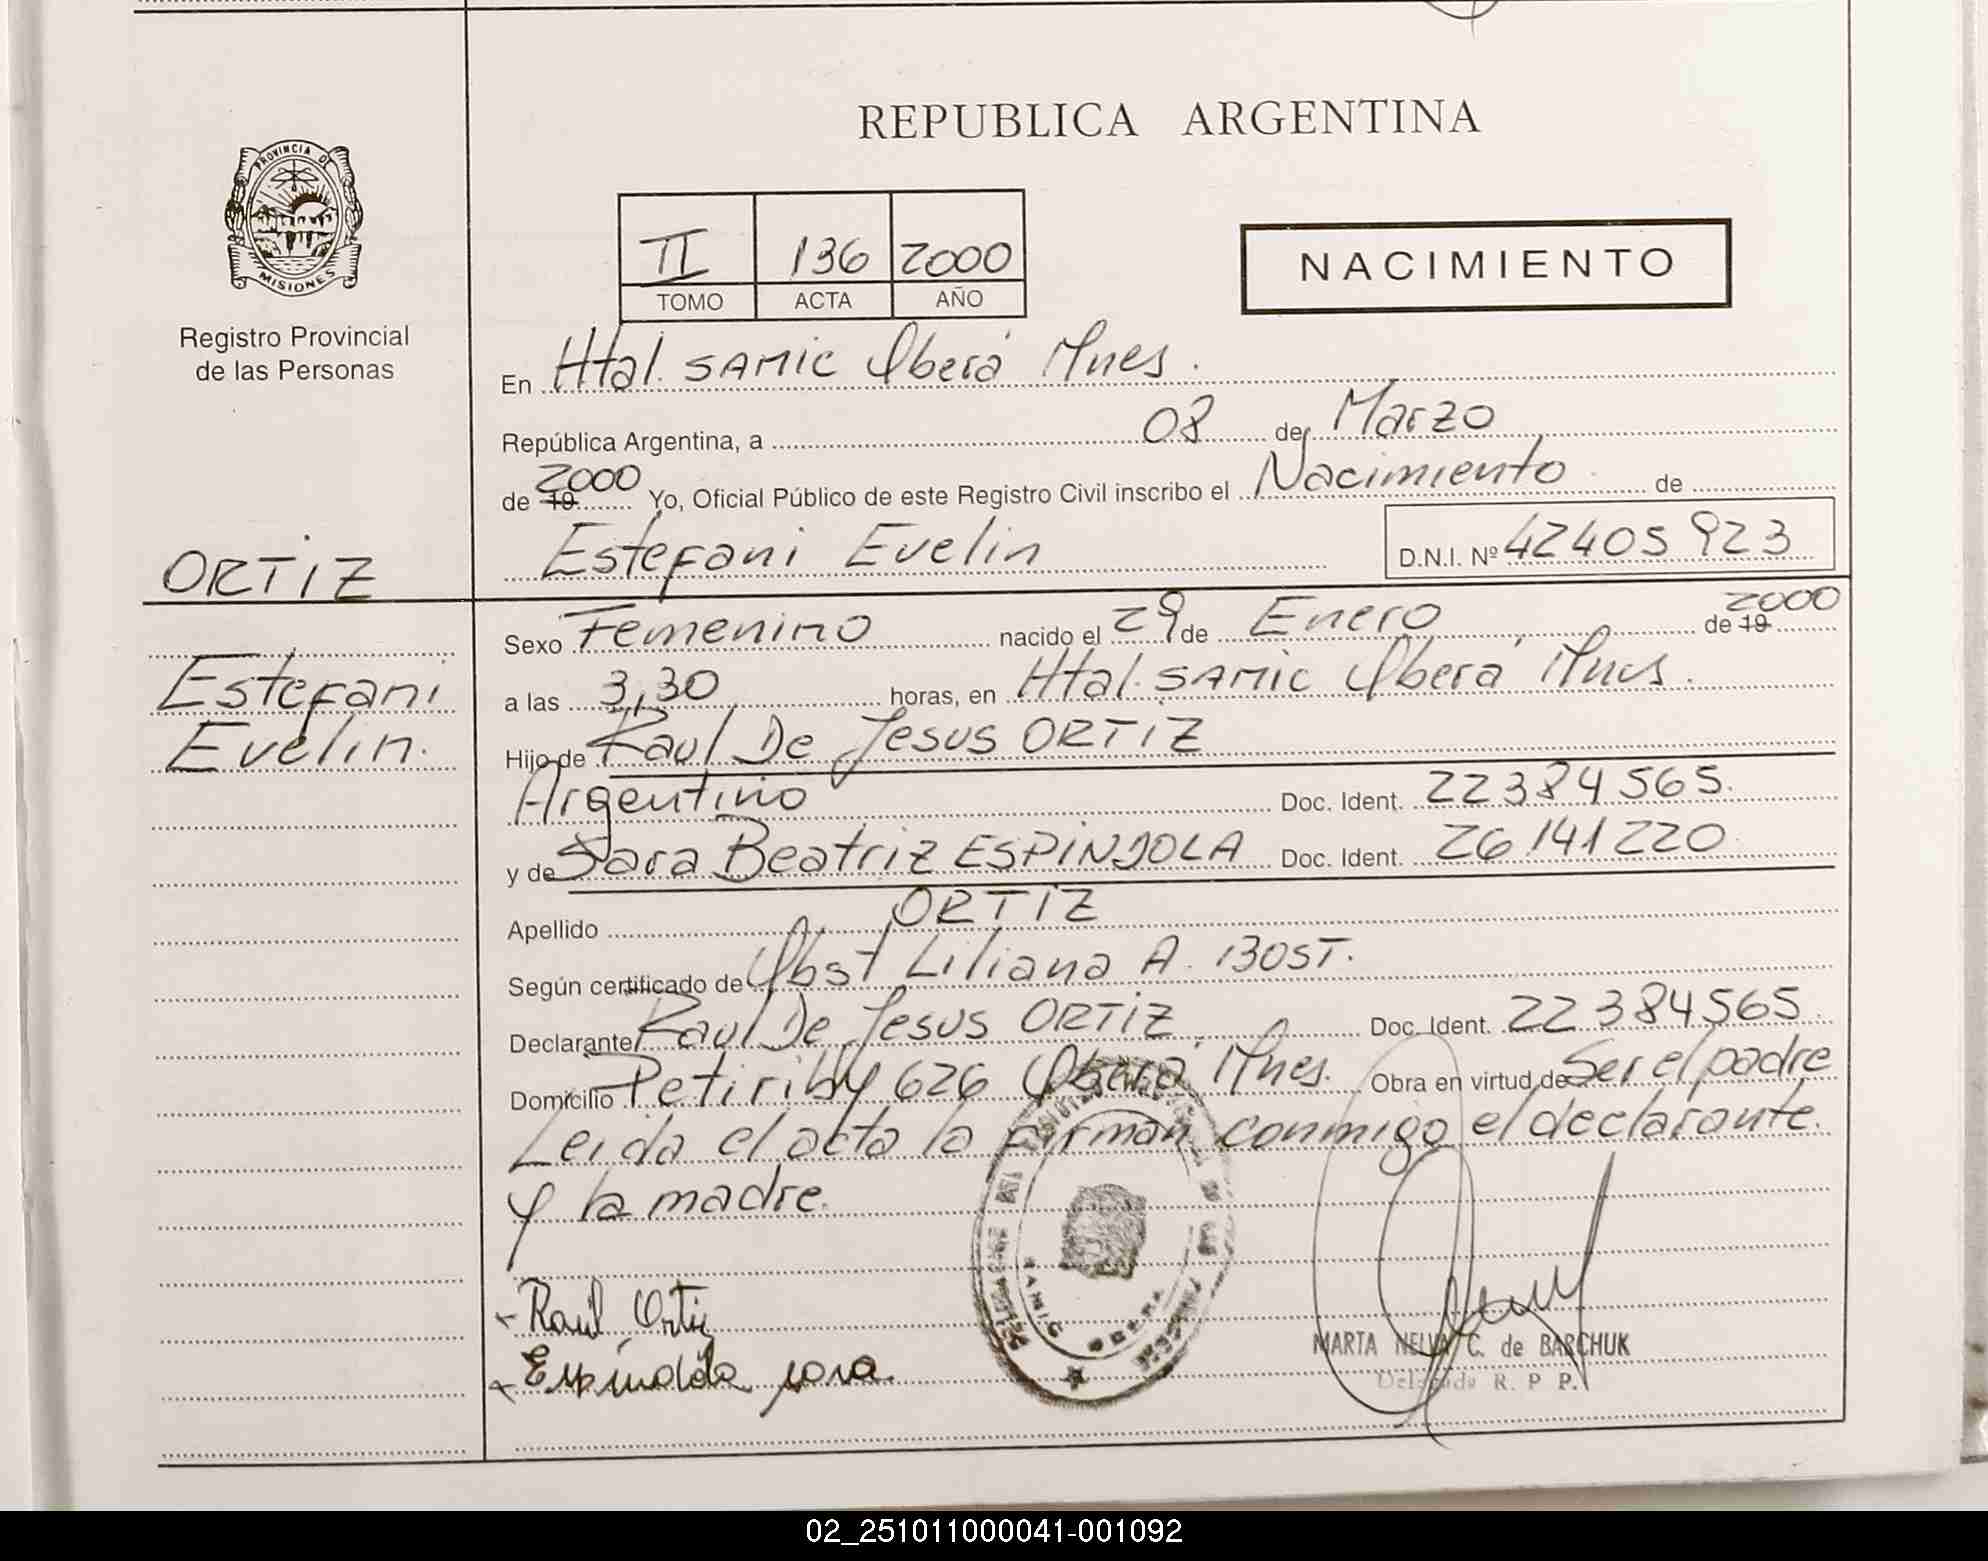 REPUBLICA ARGENTINA
PROVINCIA DE
MISIONES
Registro Provincial
de las Personas
II 136 2000
TOMO ACTA AÑO
NACIMIENTO
En Htal. SAMIC Oberá Mnes.
República Argentina, a 08 de Marzo
de 2000 19 Yo, Oficial Público de este Registro Civil inscribo el Nacimiento de
Estefani Evelin D.N.I. Nº 42405923
ORTIZ
Estefani
Evelin.
Sexo Femenino nacido el 29 de Enero de 19 2000
a las 3,30 horas, en Htal. SAMIC Oberá Mnes.
Hijo de Raul De Jesus ORTIZ
Argentino Doc. Ident. 22384565.
y de Sara Beatriz ESPINDOLA Doc. Ident. 26141220
Apellido ORTIZ
Según certificado de Obst Liliana A. BOST.
Declarante Raul De Jesus ORTIZ Doc. Ident. 22384565.
Domicilio Petiriby 626 Oberá Mnes. Obra en virtud de Ser el padre
Leida el acta la firman conmigo el declarante
y la madre.
Raúl Ortiz
Espindola Sara
SAMIC
MARTA NELVA C. de BARCHUK
Delegada R. P. P.
02_251011000041-001092